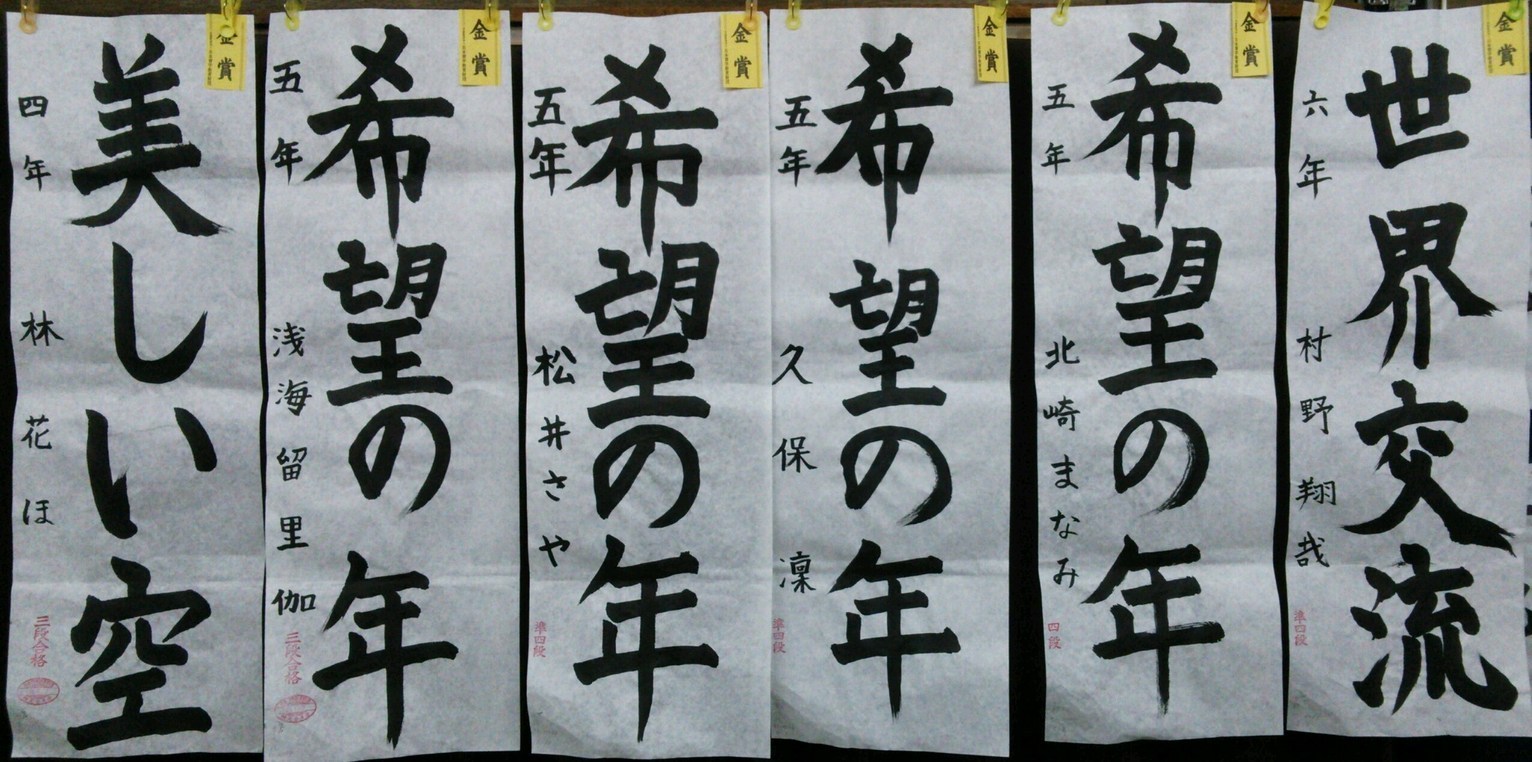 金賞
美しい空
四年 林花ほ
三段合格
金賞
希望の年
五年 浅海留里伽
三段合格
金賞
希望の年
五年 松井さや
準四段
金賞
希望の年
五年 久保凜
準四段
金賞
希望の年
五年 北崎まなみ
四段
金賞
世界交流
六年 村野翔哉
準四段